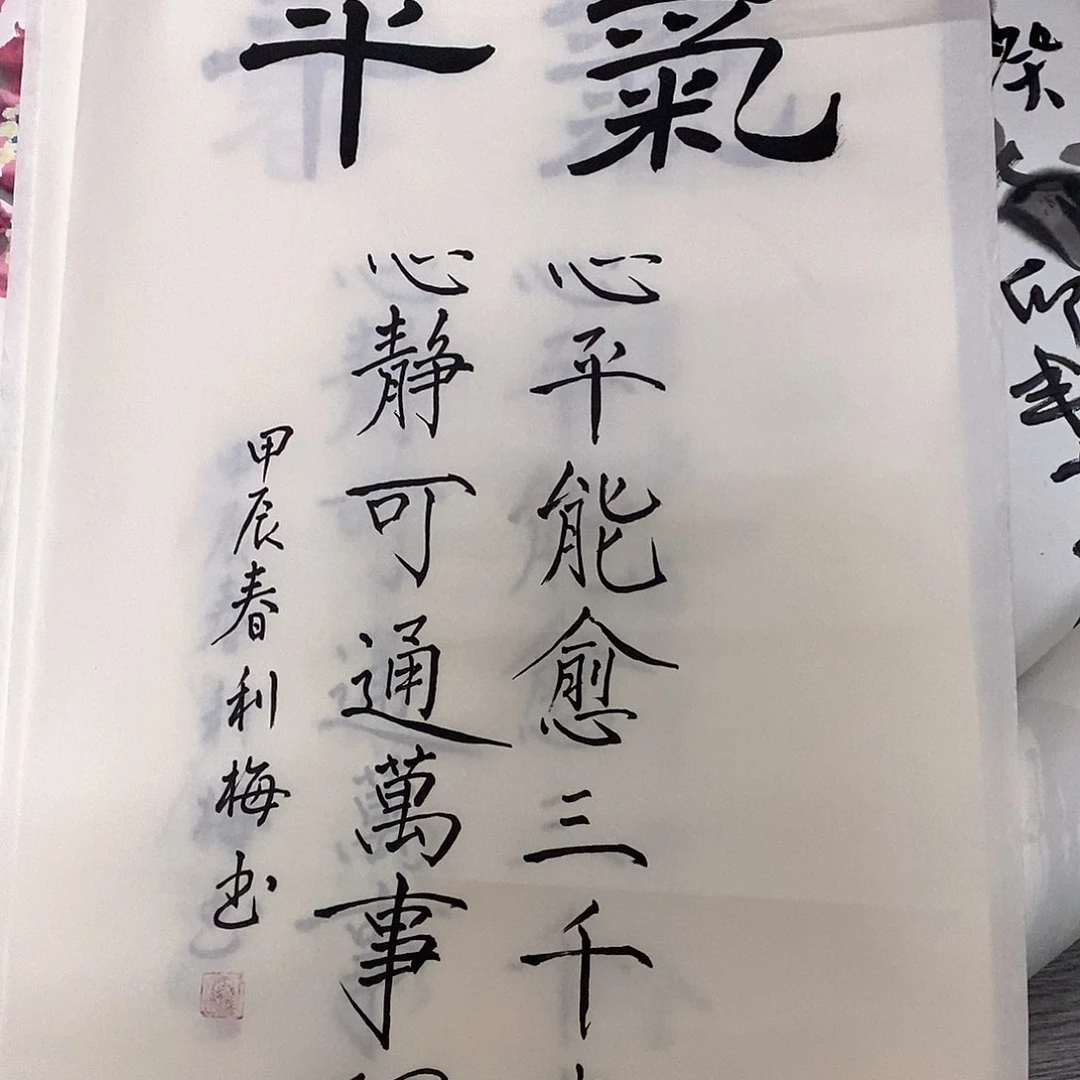 氣
平
心平能愈三千
心静可通萬事
甲辰春利梅书